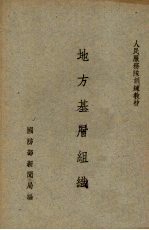 人民服務隊訓練教材
地方基層組織
國防部新聞局編